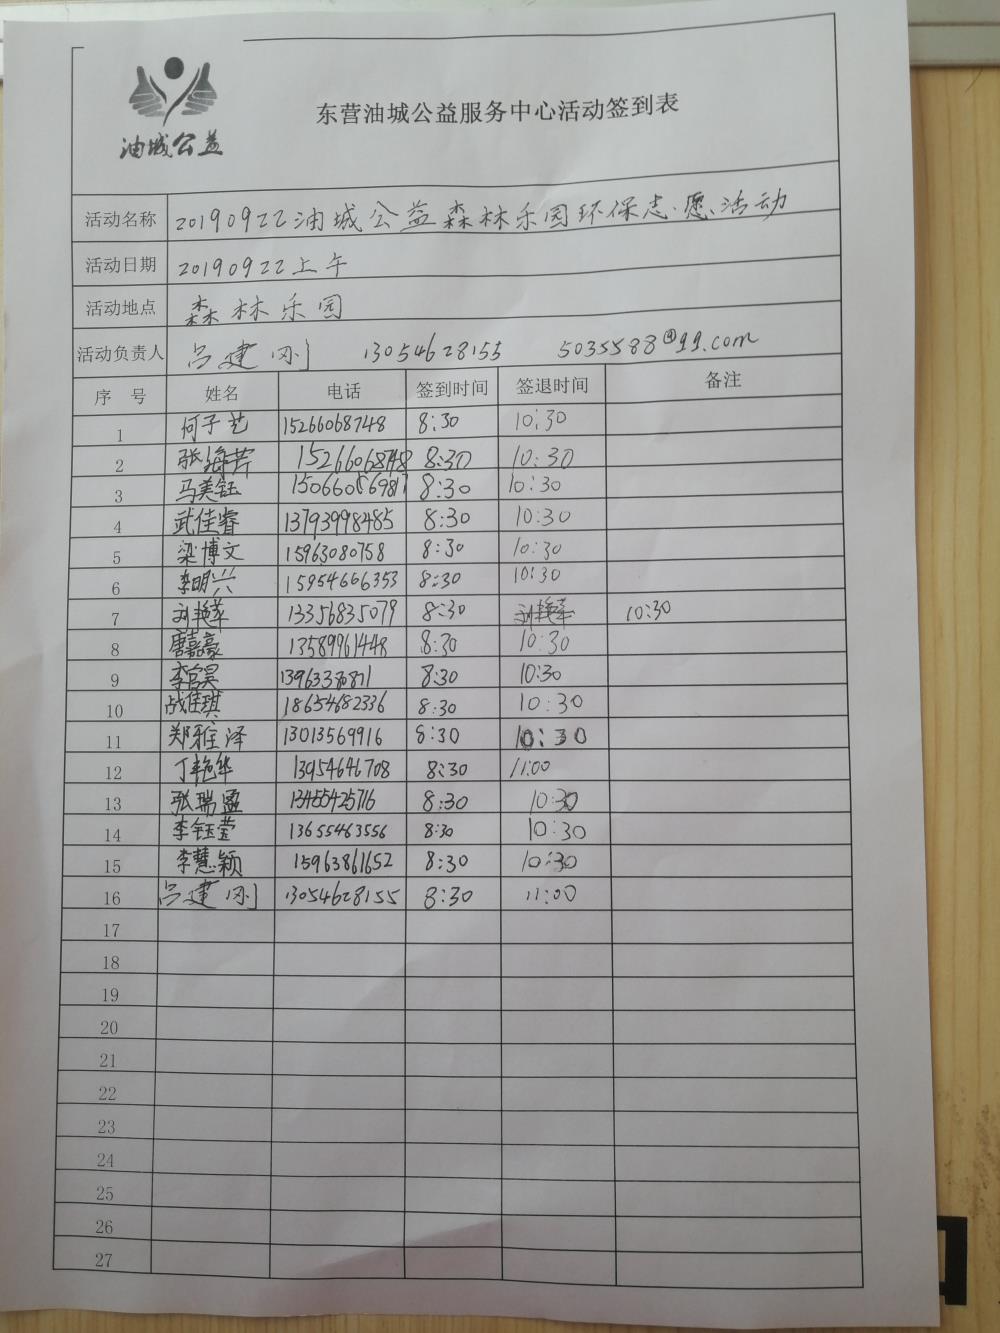 油城公益
东营油城公益服务中心活动签到表
活动名称 20190922油城公益森林乐园环保志愿活动
活动日期 20190922上午
活动地点 森林乐园
活动负责人 吕建刚 13054628155 5035588@qq.com
序号 姓名 电话 签到时间 签退时间 备注
1 何子艺 15266068748 8:30 10:30
2 张海芹 15266068748 8:30 10:30
3 马美钰 8:30 10:30
4 武佳睿 13793998485 8:30 10:30
5 梁博文 15963080758 8:30 10:30
6 李明兴 15954666353 8:30 10:30
7 刘艳萍 13356835079 8:30 10:30
8 唐嘉豪 13589961448 8:30 10:30
9 李官昊 8:30 10:30
10 战佳琪 18654682336 8:30 10:30
11 郑雅泽 13013569916 8:30 10:30
12 丁艳华 13954646708 8:30 11:00
13 张瑞盈 13455425716 8:30 10:30
14 李钰莹 13655463556 8:30 10:30
15 李慧颖 15963861652 8:30 10:30
16 吕建刚 13054628155 8:30 11:00
17
18
19
20
21
22
23
24
25
26
27